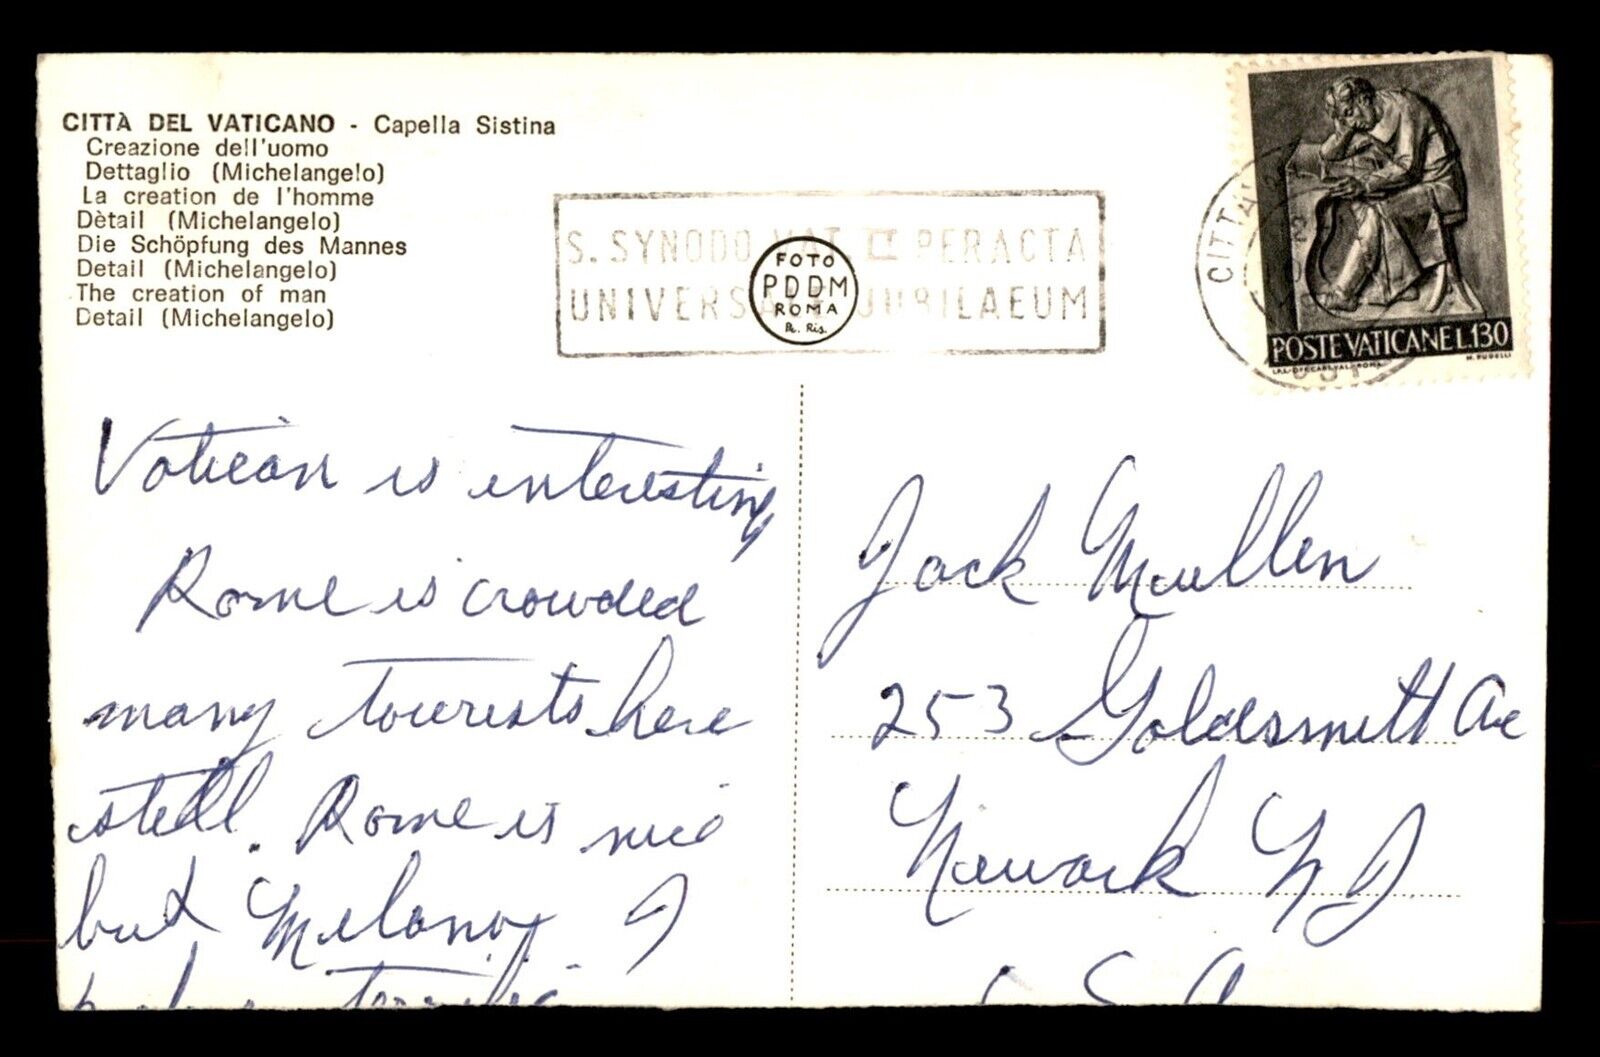 CITTÀ DEL VATICANO - Capella Sistina
Creazione dell'uomo
Dettaglio (Michelangelo)
La creation de l'homme
Dètail (Michelangelo)
Die Schöpfung des Mannes
Detail (Michelangelo)
The creation of man
Detail (Michelangelo)
S. SYNODO VAT. II PERACTA
UNIVERSALE JUBILAEUM
FOTO
PDDM
ROMA
R. Ris.
CITTA
POSTE VATICANE L.130
M. RUDELLI
Vatican is interesting,
Rome is crowded
many tourists here
still. Rome is nice
but
Jack Mullen
253 Goldsmith Ave
Newark N J
S A